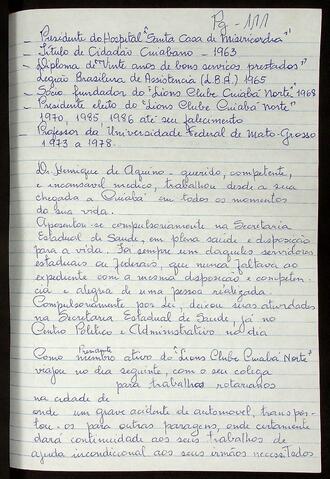 Pg - 111
- Presidente do Hospital "Santa Casa de Misericordia"
- Titulo de Cidadão Cuiabano - 1963
- Diploma de "Vinte anos de bons serviços prestados"
Legião Brasileira de Assistencia (L.B.A.) 1965
- Sócio fundador do "Lions Clube Cuiabá Norte" 1968
- Presidente eleito do "Lions Clube Cuiabá Norte"
1970, 1985, 1986 até seu falecimento
- Professor da Universidade Federal de Mato-Grosso
1973 a 1978.
Dr. Henrique de Aquino - querido, competente,
e incansavel medico, trabalhou desde a sua
chegada a Cuiabá em todos os momentos
da sua vida.
Aposentou-se compulsoriamente na Secretaria
Estadual de Saude, em plena saude e disposição
para a vida. Foi sempre um daqueles servidores
estaduais ou federais, que nunca faltava ao
expediente com a mesma disposição e competen
cia e alegria de uma pessoa realizada.
Compulsoriamente por Lei, deixou suas atividades
na Secretaria Estadual de Saude, já no
Centro Politico e Administrativo no dia
Como Presidente membro ativo do "Lions Clube Cuiabá Norte"
viajou no dia seguinte, com o seu colega
para trabalhos rotarianos
na cidade de
onde um grave acidente de automovel, transpor-
tou-os para outras paragens, onde certamente
dará continuidade aos seus trabalhos de
ajuda incondicional aos seus irmãos necessitados